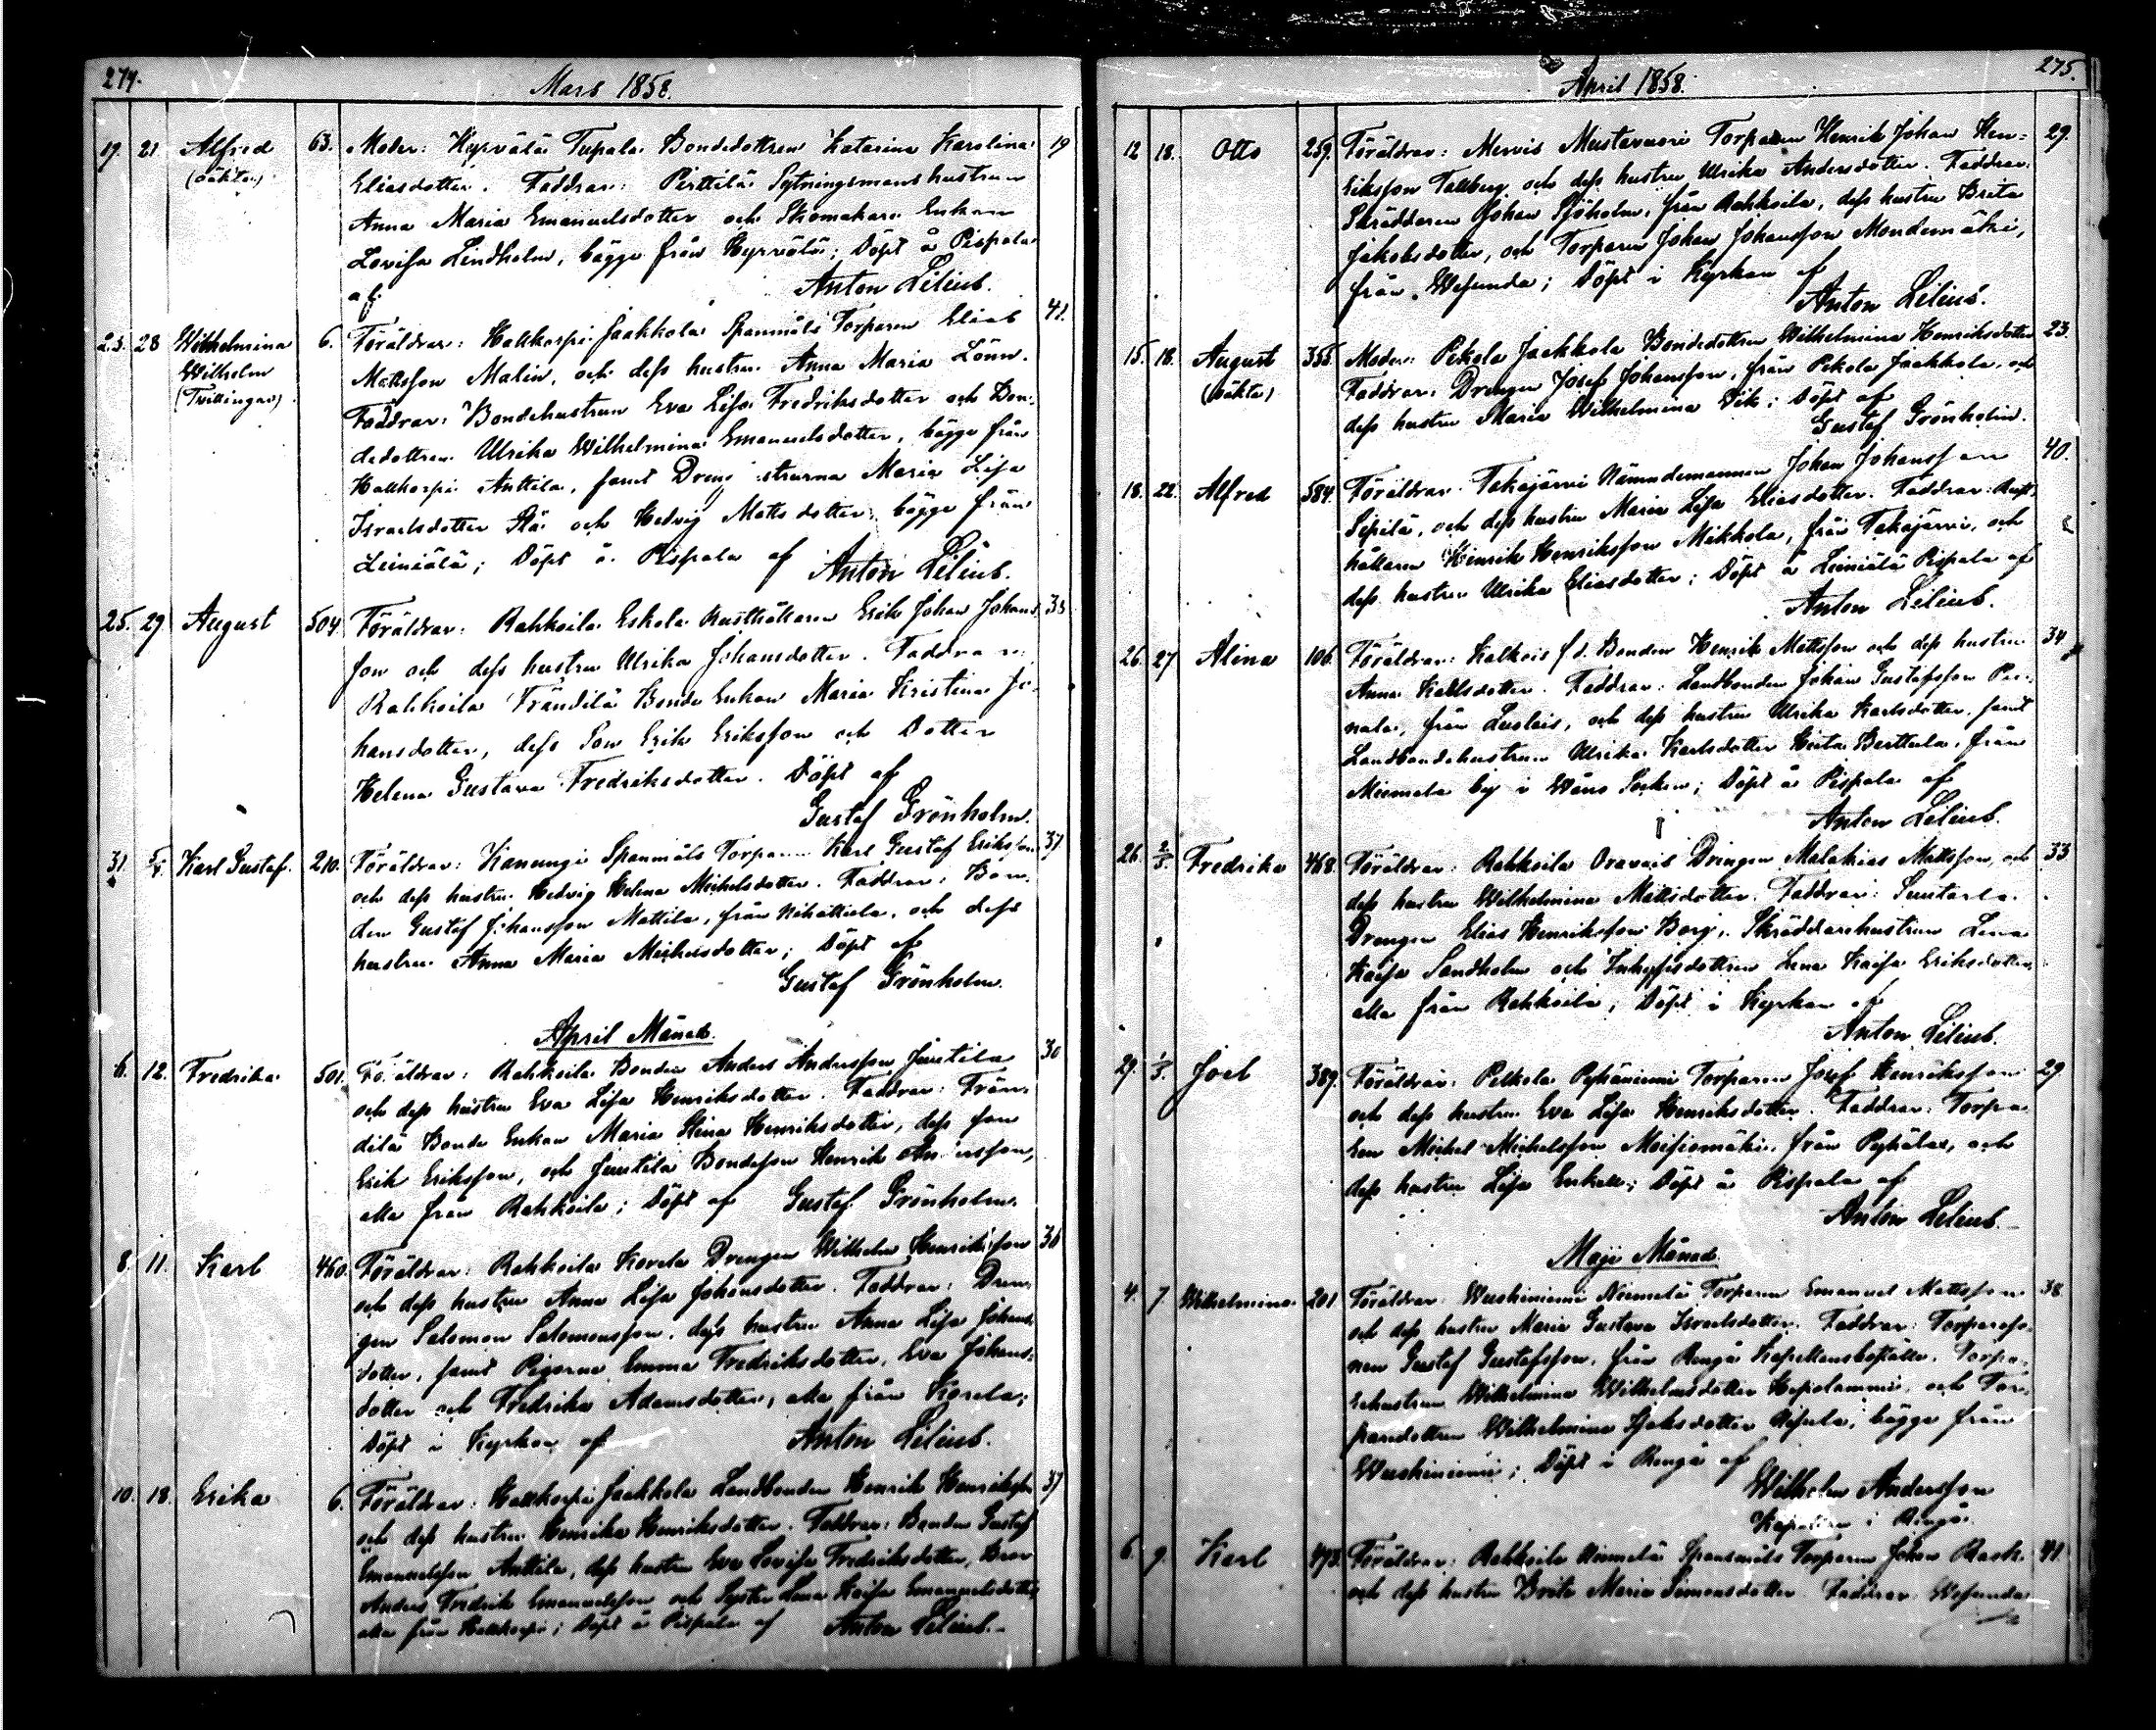 274.
Mars 1858.
19. 21. Alfred 63. Moder: Hyrvälä Tupala Bondedottren Katarina Karolina 19
(oäkta) Eliasdotter. Faddrar: Perttilä Sytningsmans hustrun
Anna Maria Emanuelsdotter och Skomakare Enkan
Lovisa Lindholm, bägge från Hyrvälä; Döpt å Pispala
af Anton Lilius.
23. 28 Wilhelmina 6. Föräldrar: Hattkorpi Jaakkola Spanmåls Torparen Elias 41.
Wilhelm Mattsson Malin, och dess hustru Anna Maria Lönn.
(Tvillingar) Faddrar: Bondehustrun Eva Lisa Fredriksdotter och Bon-
dedottren Ulrika Wilhelmina Emanuelsdotter, bägge från
Hattkorpi Anttila, samt Dreng strurna Maria Lisa
Israelsdotter och Hedvig Matts dotter, bägge från
Leiniälä; Döpt å Pispala af Anton Lilius.
25. 29. August 504. Föräldrar: Rahkoila Eskola Rusthållaren Erik Johan Johans- 33
son och dess hustru Ulrika Johansdotter. Faddrar:
Rahkoila Frändilä Bonde Enkan Maria Kristina Jo-
hansdotter, dess Son Erik Eriksson och Dotter
Helena Gustava Fredriksdotter. Döpt af
Gustaf Grönholm.
31. 5/4. Karl Gustaf. 210. Föräldrar: Kanungi Spanmåls Torparen Karl Gustaf Eriksson 37
och dess hustru Hedvig Helena Michelsdotter. Faddrar: Bon-
den Gustaf Johansson Mattila, från Nihattula, och dess
hustru Anna Maria Michelsdotter; Döpt af
Gustaf Grönholm.
April Månad.
6. 12. Fredrika 501. Föräldrar: Rahkoila Bonden Anders Andersson Juutila 30
och dess hustru Eva Lisa Henriksdotter. Faddrar: Frän-
dilä Bonde Enkan Maria Stina Henriksdotter, dess son
Erik Eriksson, och Juutila Bondeson Henrik Andersson,
alla från Rahkoila; Döpt af Gustaf Grönholm.
8. 11. Karl 460. Föräldrar: Rahkoila Korela Drengen Wilhelm Henriksson 36
och dess hustru Anna Lisa Johansdotter. Faddrar: Dren-
gen Salomon Salomonsson, dess hustru Anna Lisa Johans-
dotter, samt Pigorna Emma Fredriksdotter, Eva Johans-
dotter och Fredrika Adamsdotter, alla från Korela;
Döpt i Kyrkan af Anton Lilius.
10. 18. Erika 6. Föräldrar: Hattkorpi Jaakkola Landbonden Henrik Henriksson 37
och dess hustru Henrika Henriksdotter. Faddrar: Bonden Gustaf
Emanuelsson Anttila, dess hustru Eva Lovisa Fredriksdotter, Bror
Anders Fredrik Emanuelsson och Syster Lena Kaisa Emanuelsdotter
alla från Hattkorpi; Döpt å Pispala af Anton Lilius.
April 1858. 275.
12 18. Otto 259. Föräldrar: Mervis Mustavuori Torparen Henrik Johan Hen- 29.
Eriksson Tallberg och dess hustru Ulrika Andersdotter. Faddrar:
Skräddaren Johan Sjöholm, från Rahkoila, dess hustru Brita
Jakobsdotter, och Torparen Johan Johansson Mondemäki,
från Wesunda; Döpt i Kyrkan af
Anton Lilius.
15. 18. August 355. Moder: Pekola Jaakkola Bondedottren Wilhelmina Henriksdotter 23.
(oäkta) Faddrar: Drengen Josef Johansson, från Pekola Jaakkola, och
dess hustru Maria Wilhelmina Vik; Döpt af
Gustaf Grönholm.
18. 22. Alfred 584. Föräldrar: Takajärvi Nämndemannen Johan Johansson 40.
Sipilä, och dess hustru Maria Lisa Eliasdotter. Faddrar: Rust-
hållaren Henrik Henriksson Mikkola, från Takajärvi, och
dess hustru Ulrika Eliasdotter; Döpt å Leiniälä Pispala af
Anton Lilius.
26. 27 Alina 106. Föräldrar: Kalkois f d. Bonden Henrik Mattsson och dess hustru 34
Anna Kallsdotter. Faddrar: Landbonden Johan Gustafsson
från Luolais, och dess hustru Ulrika Karlsdotter, samt
Landbondehustrun Ulrika Karlsdotter Bertlula, från
Miemala by i Wånå Socken; Döpt å Pispala af
Anton Lilius.
26. 2/5. Fredrika 468. Föräldrar: Rahkoila Oravais Drengen Malakias Mattsson, och 33
dess hustru Wilhelmina Mattsdotter. Faddrar:
Drengen Elias Henriksson Borg, Skräddarehustrun Lena
Kaisa Sandholm och Inhysesdottren Lena Kaisa Eriksdotter,
alla från Rahkoila; Döpt i Kyrkan af
Anton Lilius.
29. 1/5. Joel 389. Föräldrar: Pelkola Pyhäniemi Torparen Josef Henriksson 29.
och dess hustru Eva Lisa Henriksdotter. Faddrar: Torpa-
ren Michel Michelsson Moisiomäki, från Pyhälax, och
dess hustru Lisa Enkell; Döpt å Pispala af
Anton Lilius.
Maji Månad.
4. 7 Wilhelmina. 201 Föräldrar: Wuohiniemi Niemelä Torparen Emanuel Mattsson 38
och dess hustru Maria Gustava Israelsdotter. Faddrar: Torpareso-
nen Gustaf Gustafsson, från Rengå Kapellansboställe, Torpa-
rehustrun Wilhelmina Wilhelmsdotter och Tor-
paredottren Wilhelmina bägge från
Wuohiniemi; Döpt i Rengå af
Wilhelm Andersson
Kapellan i Rengå.
6. 9. Karl 473. Föräldrar: Rahkoila Niemelä Spanmåls Torparen Johan Rask 41
och dess hustru Brita Maria Simonsdotter. Faddrar: Wesunda